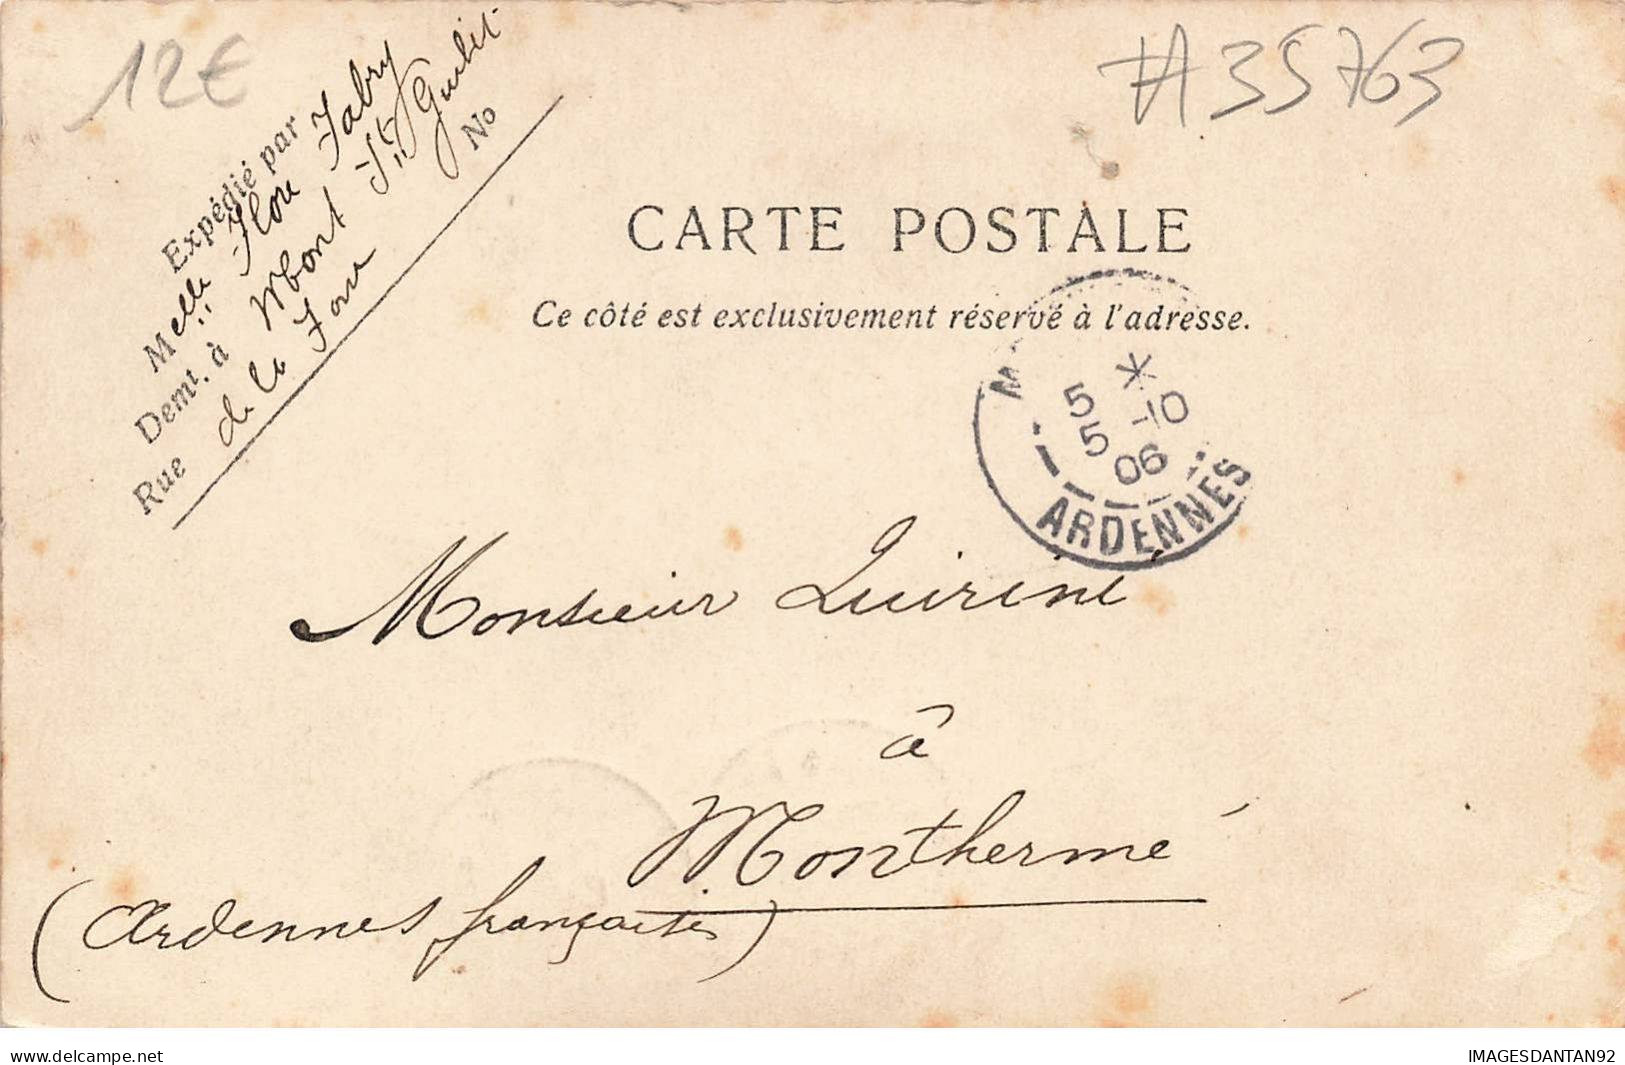 12€
#A35763
Expédié par
Melle Flore Fabry
Demt. à Mont St Guibert
Rue de la No
CARTE POSTALE
Ce côté est exclusivement réservé à l'adresse.
5 *
5 -10
06
ARDENNES
Monsieur Quirini
à
Monthermé
(Ardennes françaises)
www.delcampe.net
IMAGESDANTAN92